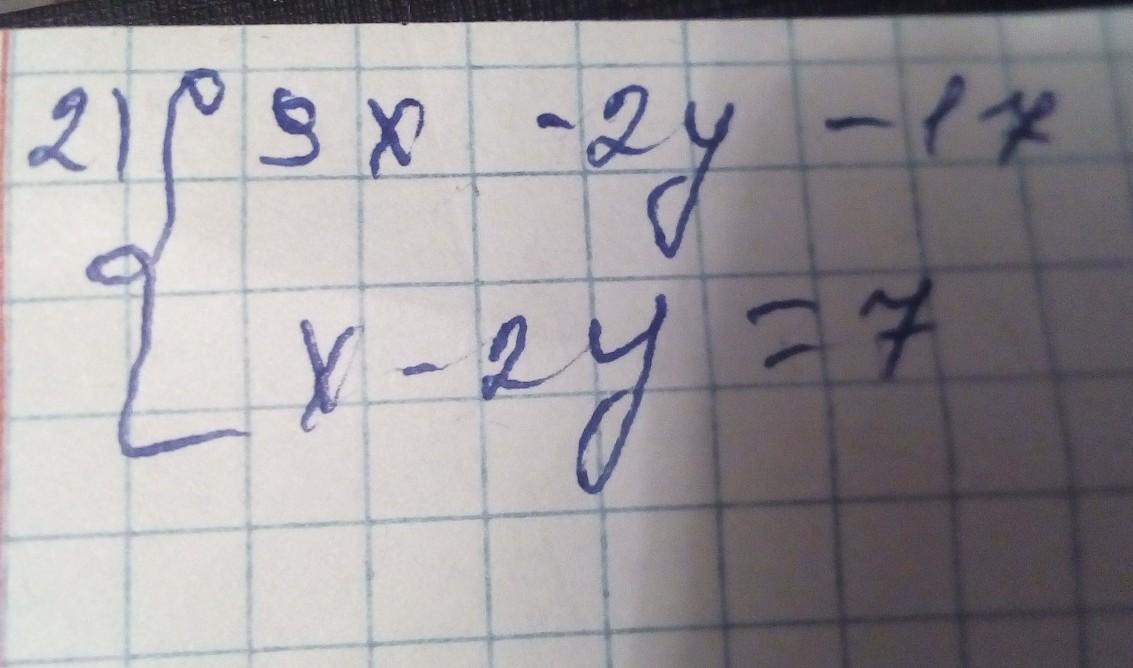 2) { 9x - 2y - 17
x - 2y = 7